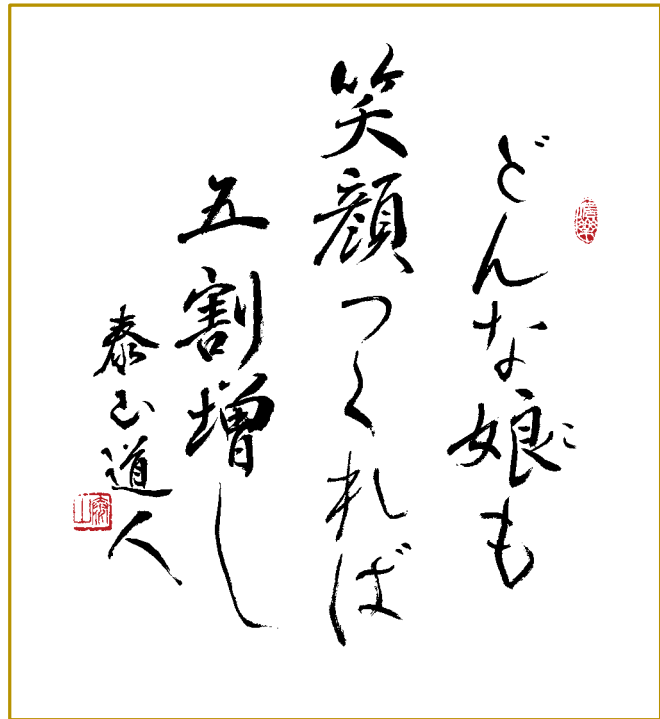 どんな娘も
こ
笑顔つくれば
五割増し
泰山道人
泰山